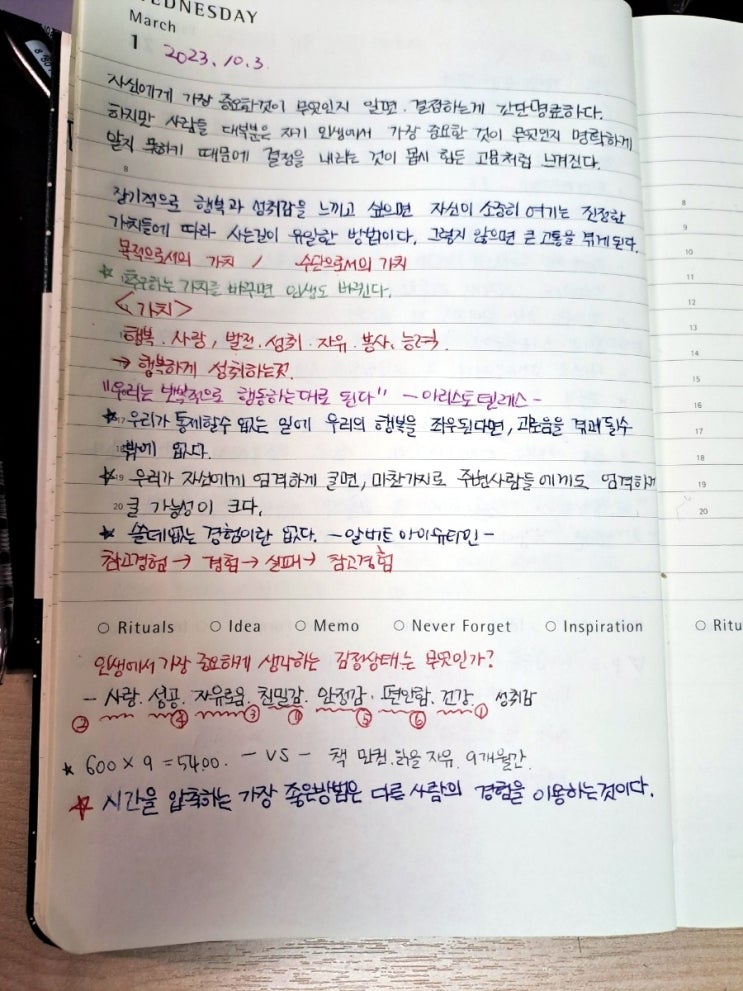 WEDNESDAY
March
1 2023. 10. 3.
자신에게 가장 중요한것이 무엇인지 알면. 결정하는게 간단명료하다.
하지만 사람들 대부분은 자기 인생에서 가장 중요한 것이 무엇인지 명확하게
알지 못하기 때문에 결정을 내리는 것이 몹시 힘든 고문처럼 느껴진다.
8
장기적으로 행복과 성취감을 느끼고 싶으면 자신이 소중히 여기는 진정한
가치들에 따라 사는길이 유일한 방법이다. 그렇지 않으면 큰 고통을 겪게된다.
목적으로서의 가치 / 수단으로서의 가치
☆ 추구하는 가치를 바꾸면 인생도 바뀐다.
<가치>
행복. 사랑, 발전. 성취. 자유. 봉사. 능력.
→ 행복하게 성취하는것.
"우리는 반복적으로 행동하는대로 된다" - 아리스토텔레스 -
☆ 우리가 통제할수 없는 일에 우리의 행복을 좌우된다면, 고통을 겪게될수
밖에 없다.
☆ 19 우리가 자신에게 엄격하게 굴면, 마찬가지로 주변사람들에게도 엄격하게
20 굴 가능성이 크다.
☆ 쓸데없는 경험이란 없다. - 알버트 아이슈타인 -
참고경험 → 경험 → 실패 → 참고경험
○ Rituals ○ Idea ○ Memo ○ Never Forget ○ Inspiration
인생에서 가장 중요하게 생각하는 감정상태는 무엇인가?
- 사랑. 성공. 자유로움. 친밀감. 안정감. 편안함. 건강. 성취감
② ④ ③ ⑤ ⑥ ①
☆ 600 × 9 = 5400. - VS - 책 만권. 읽을 자유. 9개월간.
☆ 시간을 압축하는 가장 좋은방법은 다른 사람의 경험을 이용하는것이다.
8
10
11
12
13
14
15
16
17
18
19
20
○ Ritu